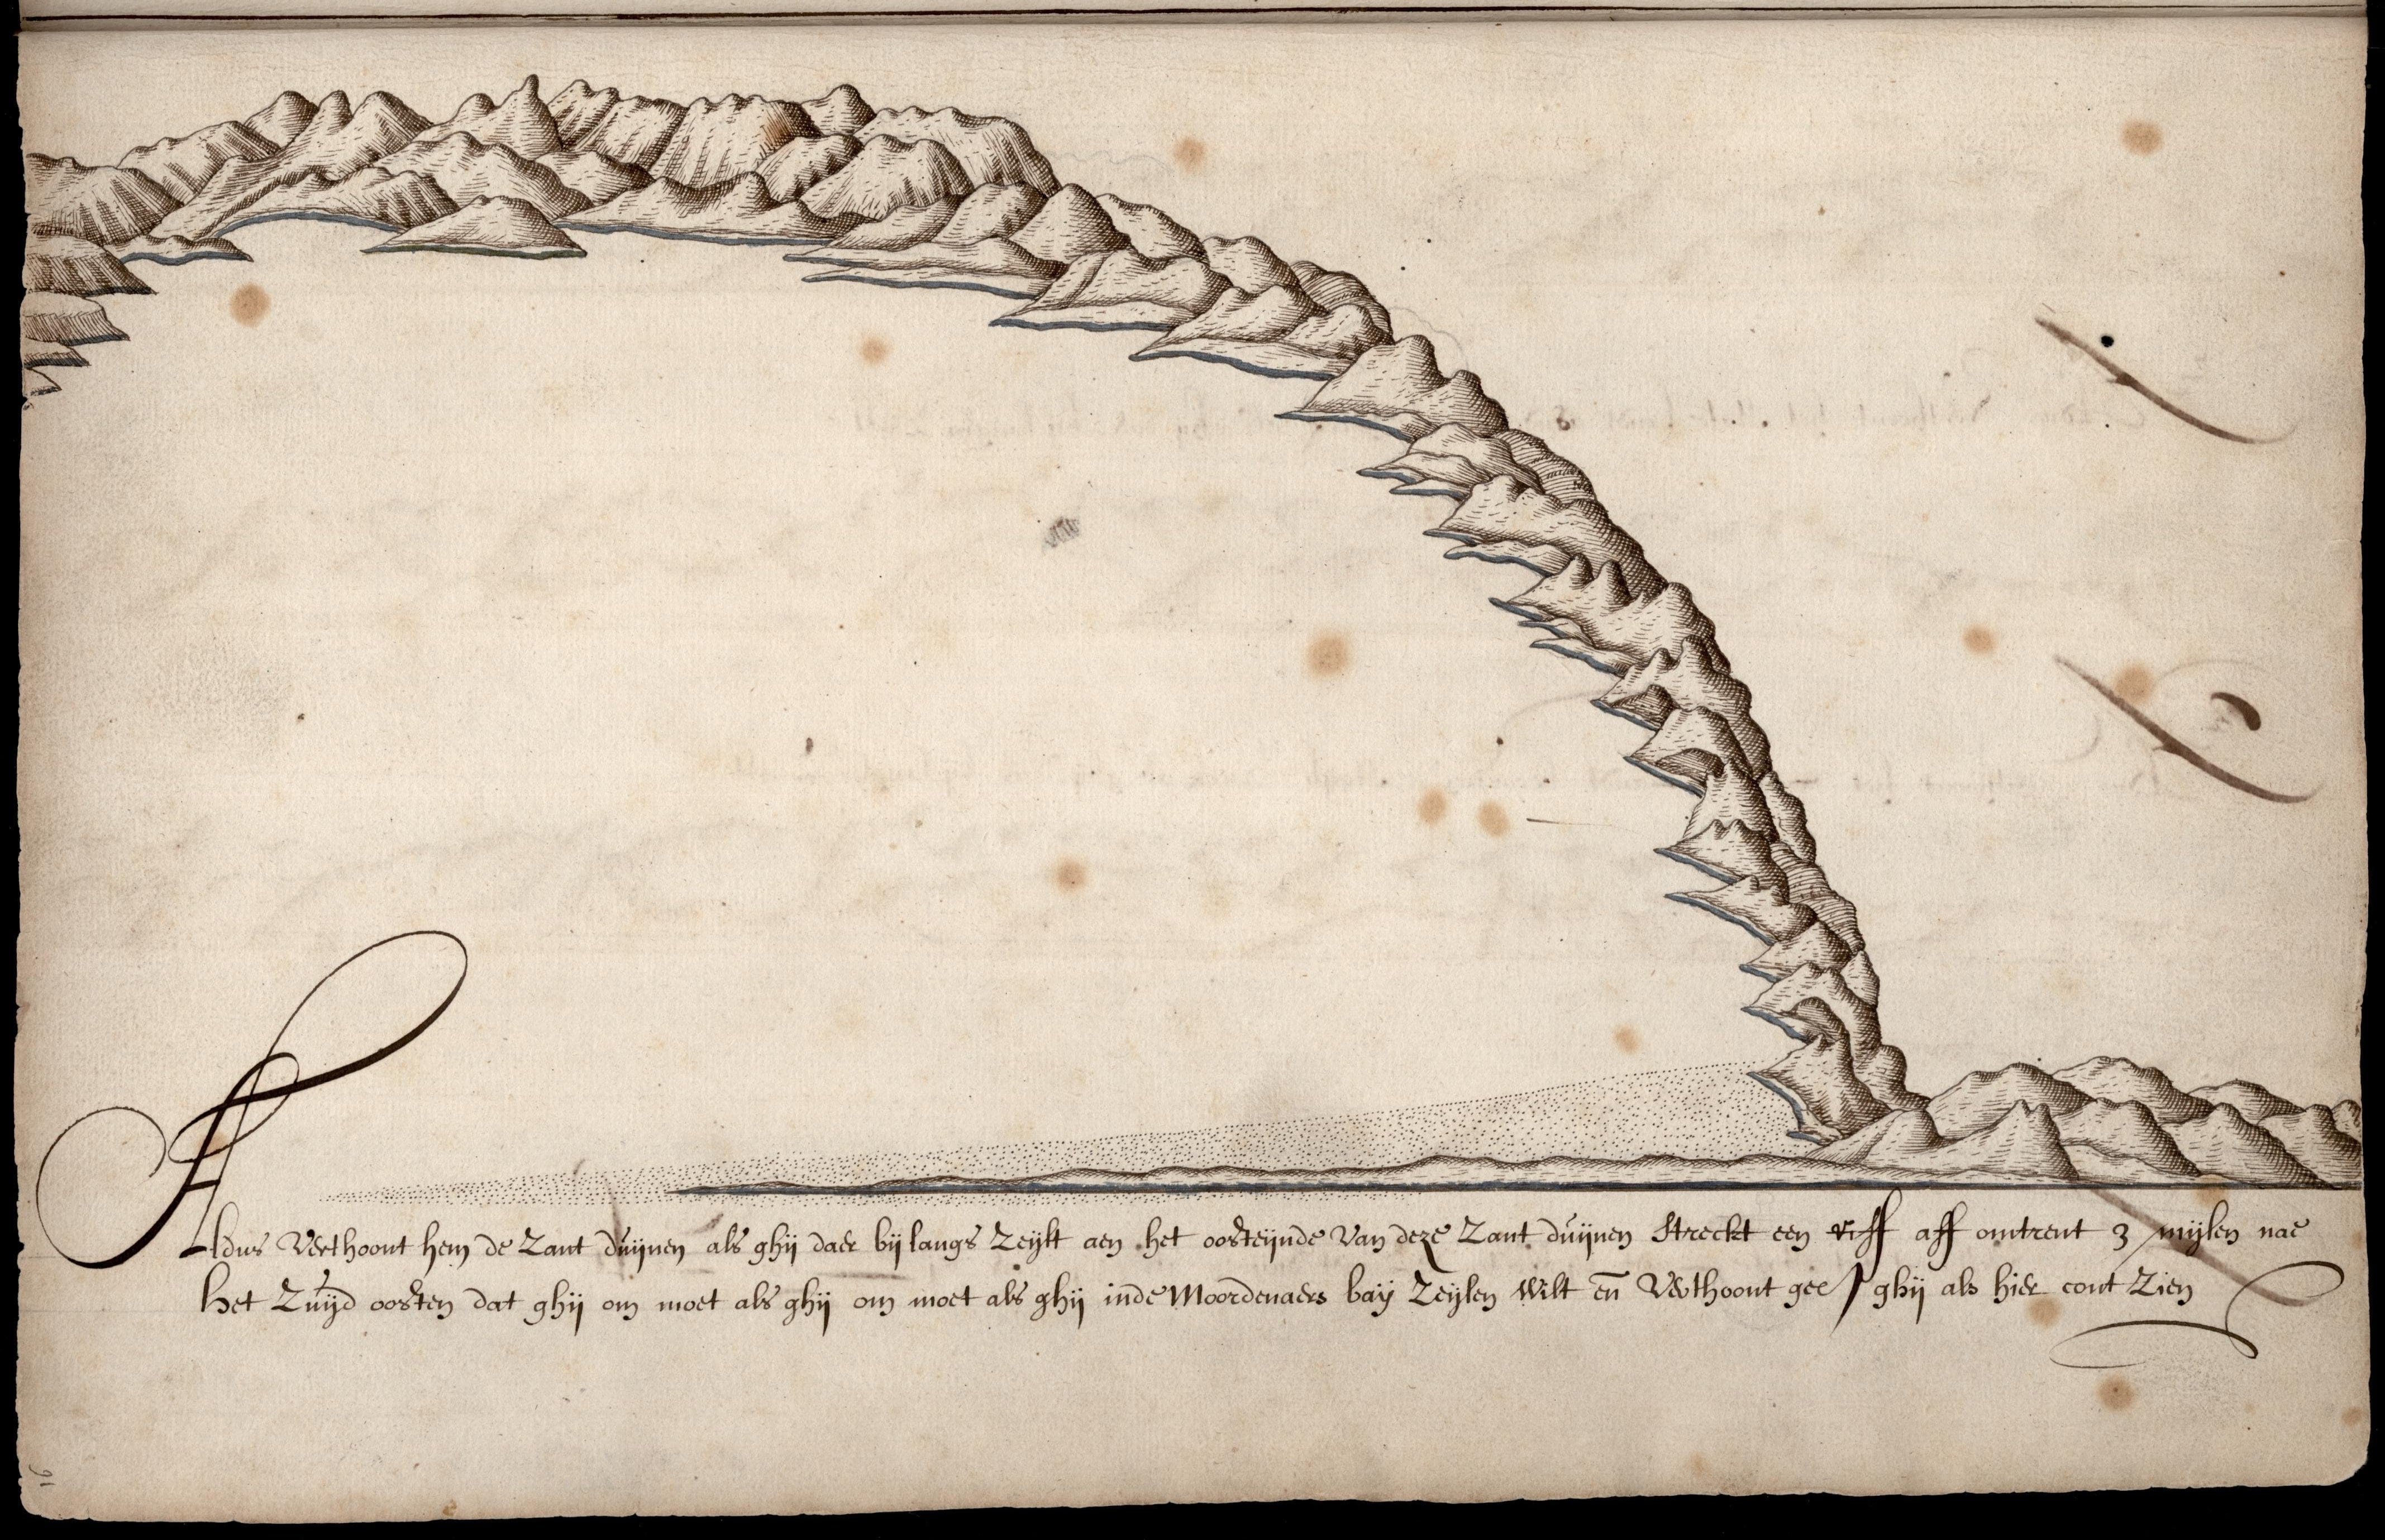 Aldus Verthoont hem de Zant duijnen als ghij daer bij langs Zeijlt aen het oosteijnde Van deze Zant duijnen Streckt een riff aff omtrent 3 mijlen nae
het Zuijd oosten dat ghij om moet als ghij om moet als ghij inde Moordenaers baij Zeijlen Wilt en̄ Verthoont gel ghij als hier cont Zien